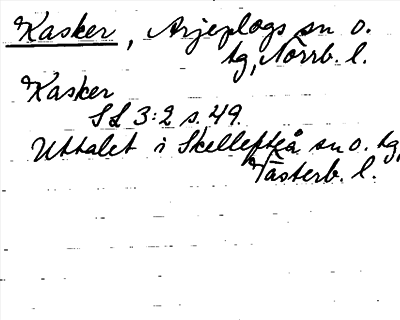 Kasker, Arjeplogs sn o.
tg, Norrb. l.
Kasker
SL 3:2 s. 49.
Uttalet i Skellefteå sn o. tg,
Västerb. l.